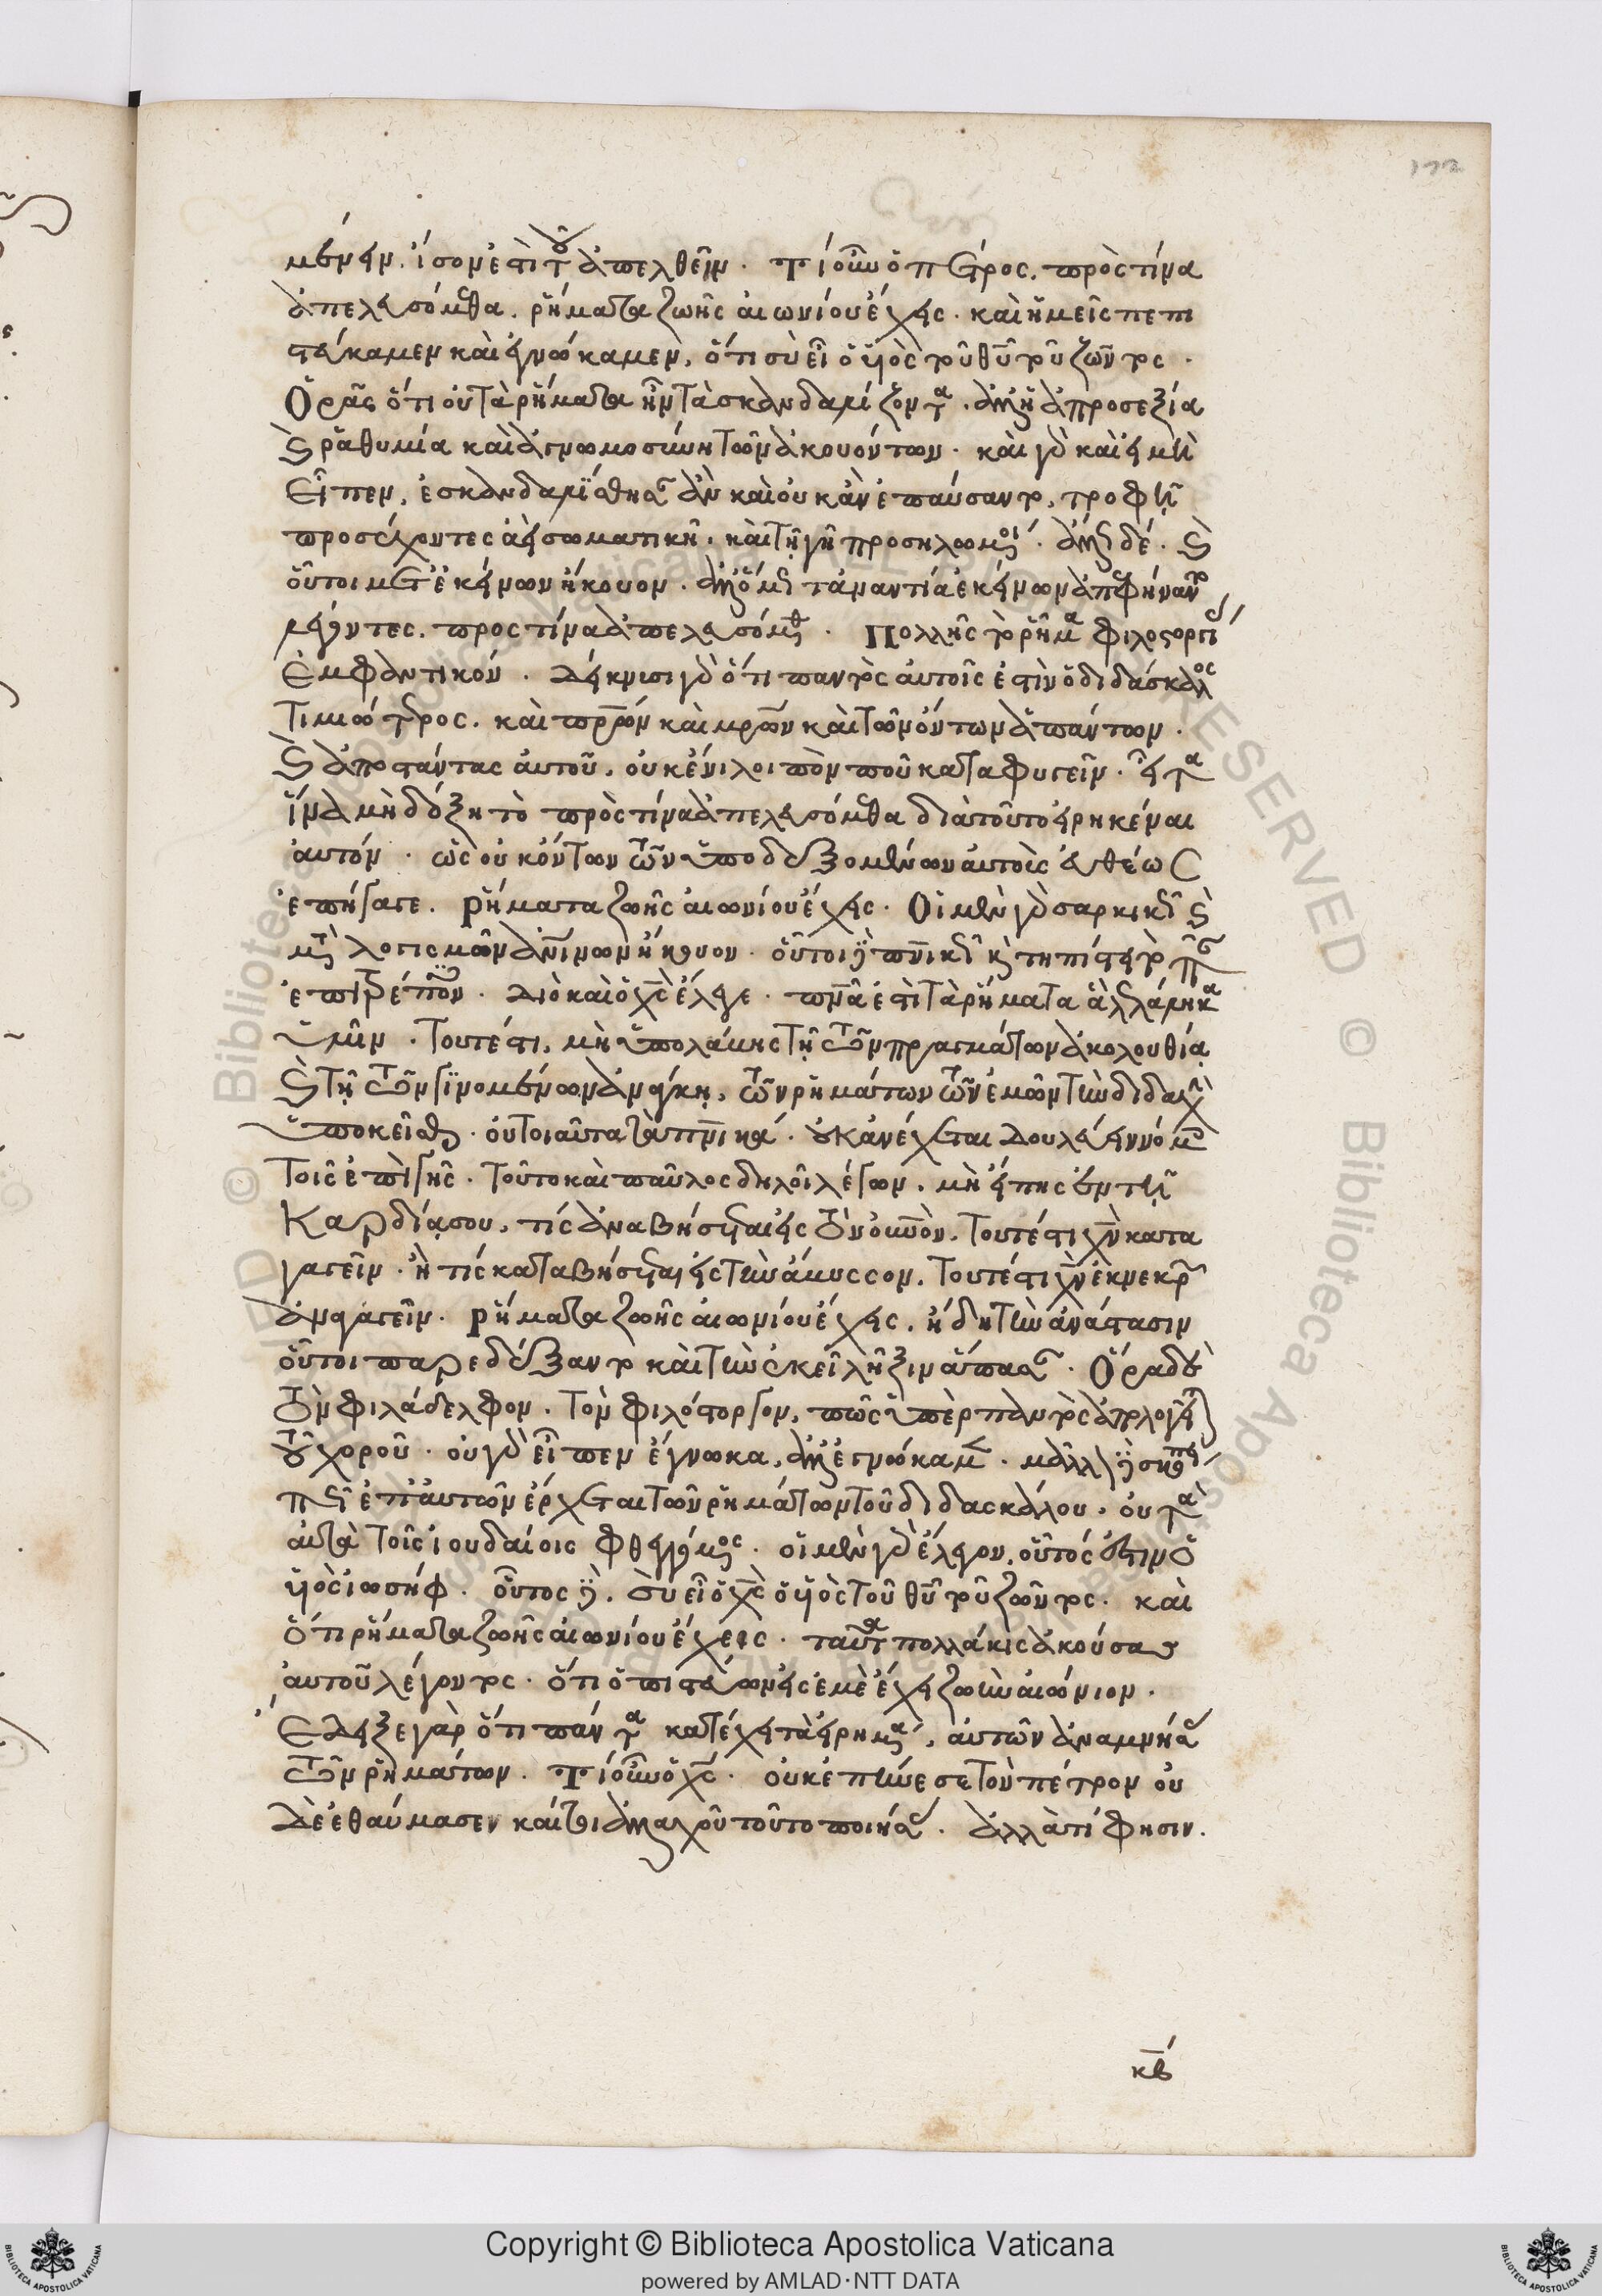 μένειν, ἴσον ἐστὶ τοῦ ἀπελθεῖν. Τί οὖν ὁ πέτρος. πρὸς τίνα
ἀπελευσόμεθα. ῥήματα ζωῆς αἰωνίου ἔχεις. καὶ ἡμεῖς πεπι
στεύκαμεν καὶ ἐγνώκαμεν, ὅτι σὺ εἶ ὁ υἱὸς τοῦ θυ τοῦ ζῶντος.
Ὁρᾶς ὅτι οὐ τὰ ῥήματα ἦν τὰ σκανδαλίζοντα. ἀλλ' ἡ ἀπροσεξία
καὶ ῥαθυμία καὶ ἀγνωμοσύνη τῶν ἀκουόντων. καὶ γὰρ καὶ εἰ μὴ
εἶπεν, ἐσκανδαλίσθησαν ἂν καὶ οὐκ ἂν ἐπαύσαντο, τροφῇ
προσέχοντες ἀεὶ σωματικῇ, καὶ τῇ γῇ προσηλωμένοι. ἄλλως δὲ. καὶ
οὗτοι μετ' ἐκείνων ἤκουον. ἀλλ' ὅμως τἀναντία ἐκείνων ἀπεφήναντο
λέγοντες. πρὸς τίνα ἀπελευσόμεθα. Πολλῆς τὸ ῥῆμα φιλοστοργίας
ἐμφαντικόν. δείκνυσι γὰρ ὅτι παντὸς αὐτοῖς ἐστὶν ὁ διδάσκαλος
τιμιώτερος. καὶ πρῶν καὶ μρῶν καὶ τῶν ὄντων ἁπάντων.
καὶ ἀποστάντας αὐτοῦ, οὐκ ἔνι λοιπὸν ποῦ καταφυγεῖν. εἶτα
ἵνα μὴ δόξῃ τὸ πρὸς τίνα ἀπελευσόμεθα διὰ τοῦτο εἰρηκέναι
αὐτόν. ὡς οὐκ ὄντων τῶν ὑποδεξομένων αὐτοὺς εὐθέως
ἐπήγαγε. ῥήματα ζωῆς αἰωνίου ἔχεις. Οἱ μὲν γὰρ σαρκικῶς καὶ
μετὰ λογισμῶν ἀνίνων ἤκουον. οὗτοι δὲ πνικῶς καὶ τῇ πίστει τὸ πᾶν
ἐπιτρέποντες. Διὸ καὶ ὁ χς ἔλεγε. πνα ἐστὶ τὰ ῥήματα ἃ λελάληκα
ὑμῖν. Τουτέστι, μὴ ὑπολάβῃς τῇ τῶν πραγμάτων ἀκολουθίᾳ
καὶ τῇ τῶν γινομένων ἀνάγκῃ, τῶν ῥημάτων τῶν ἐμῶν τὴν διδαχὴν
ὑποκεῖσθαι. οὐ τοιαῦτα τὰ πνικά. οὐκ ἀνέχεται δουλεύειν νόμοις
τοῖς ἐπὶ γῆς. Τοῦτο καὶ παῦλος δηλοῖ λέγων. μὴ εἴπῃς ἐν τῇ
Καρδίᾳ σου, τίς ἀναβήσεται εἰς τὸν οὐνὸν. Τουτέστι χν κατα
γαγεῖν. ἢ τίς καταβήσεται εἰς τὴν ἄβυσσον. Τουτέστι χν ἐκ νεκρῶν
ἀναγαγεῖν. ῥήματα ζωῆς αἰωνίου ἔχεις, ἤδη τὴν ἀνάστασιν
οὗτοι παρεδέξαντο καὶ τὴν ἐκεῖ λῆξιν ἅπασαν. Ὅρα δὲ
τὸν φιλάδελφον. Τὸν φιλόστοργον, πῶς ὑπὲρ παντὸς ἀπολογεῖται
τοῦ χοροῦ. οὐ γὰρ εἶπεν ἔγνωκα, ἀλλ' ἐγνώκαμεν. μᾶλλον δὲ σκόπει
πῶς ἐπ' αὐτῶν ἔρχεται τῶν ῥημάτων τοῦ διδασκάλου. οὐ τὰ
αὐτὰ τοῖς ἰουδαίοις φθεγγόμενος. οἱ μὲν γὰρ ἔλεγον. οὗτός ἐστιν ὁ
υἱὸς ἰωσήφ. οὗτος δὲ. σὺ εἶ ὁ χς ὁ υἱὸς τοῦ θυ τοῦ ζῶντος. καὶ
ὅτι ῥήματα ζωῆς αἰωνίου ἔχεις. ταῦτα πολλάκις ἀκούσας
αὐτοῦ λέγοντος. ὅτι ὁ πιστεύων εἰς ἐμὲ ἔχει ζωὴν αἰώνιον.
Ἔδειξε γὰρ ὅτι πάντα κατέχει τὰ εἰρημένα, αὐτῶν ἀναμνήσας
τῶν ῥημάτων. Τί οὖν ὁ χς. οὐκ ἐπῄνεσε τὸν πέτρον οὐ
δὲ ἐθαύμασεν καίτοι ἀλλαχοῦ τοῦτο ποιήσας. ἀλλὰ τί φησιν.
κβ
Copyright © Biblioteca Apostolica Vaticana
powered by AMLAD·NTT DATA